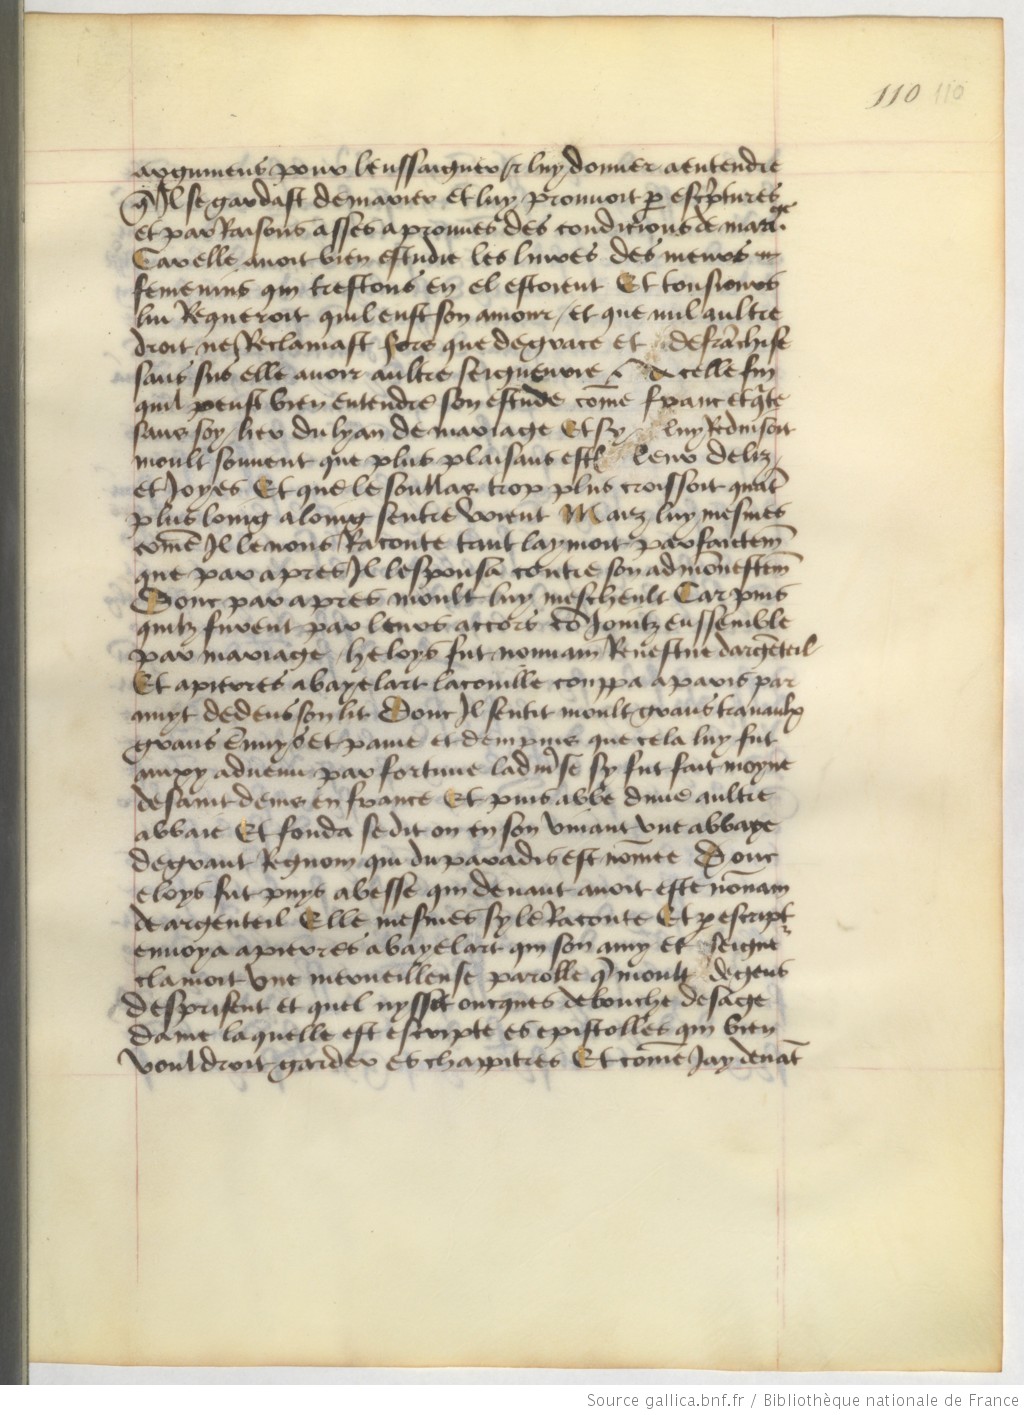 110 110
argumens pour lenssaigner et luy donner a entendre
q̃ Il se gardast de marier Et luy prouuoit p escptures
et par Raisons asses aprouues des condicions de mariage
Car elle auoit bien estudie les liures des meurs
femenins qui trestous en el estoient Et tousiours
lui Requeroit quil eust son amour / et que nul aultre
droit ne Reclamast fors que de grace et de frãchise
sans sus elle auoir aultre seigneurie A celle fin
quil peust bien entendre son estude cõme franc et qte
sans soy lier du lyan de mariage Et sy luy Redisoit
moult souuent que plus plaisans est leur deliz
et Joyes Et que le soullas trop plus croissoit quãt
plus loing a loing sentre voient Maiz luy mesmes
cõme Il le nous Raconte tant laymoit parfaictem̃
que par apres Il lespousa contre son admonestem̃
Donc par apres moult luy mescheult Car puis
quilz furent par leurs accors cõ Joinctz ensemble
par mariage heloys fut nonnain Reuestue dargẽteil
Et a pierres abayelart la couille couppa a paris par
nuyt dedens son lit Donc Il sentit moult grans trauaulx
grans Ennuys et paine et dempuis que cela luy fut
ainxy aduenu par fortune laduẽse sy fut fait moyne
de saint denis en france Et puis abbe dune aultre
abbaie Et fonda se dit on en son viuant vne abbaye
de grant Regnom qui du paradis est nõmee Donc
eloys fut puys abesse qui deuant auoit este nõnain
de argenteil Elle mesmes sy le Raconte Et p escript
enuoya a pierres abayelart qui son amy et seigneur
clamoit vne merueilleuse parolle q̃ moult de gens
desprisent et quel nyssit oncques de bouche de sage
dame laquelle est escripte es epistolles qui bien
vouldroit garder es chappitres Et cõme Jay deuãt
Source gallica.bnf.fr / Bibliothèque nationale de France